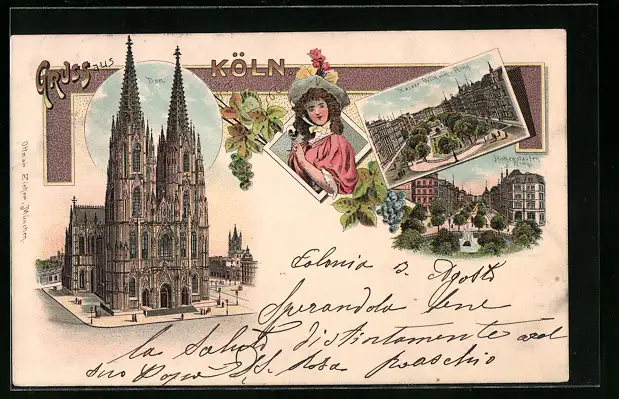 Gruss aus KÖLN.
Dom.
Kaiser Wilhelm-Ring
Hohenstaufen
Ring.
Ottmar Zieher, München.
Colonia 3 Agosto
Sperandola bene
la saluto distintamente
suo Rosa